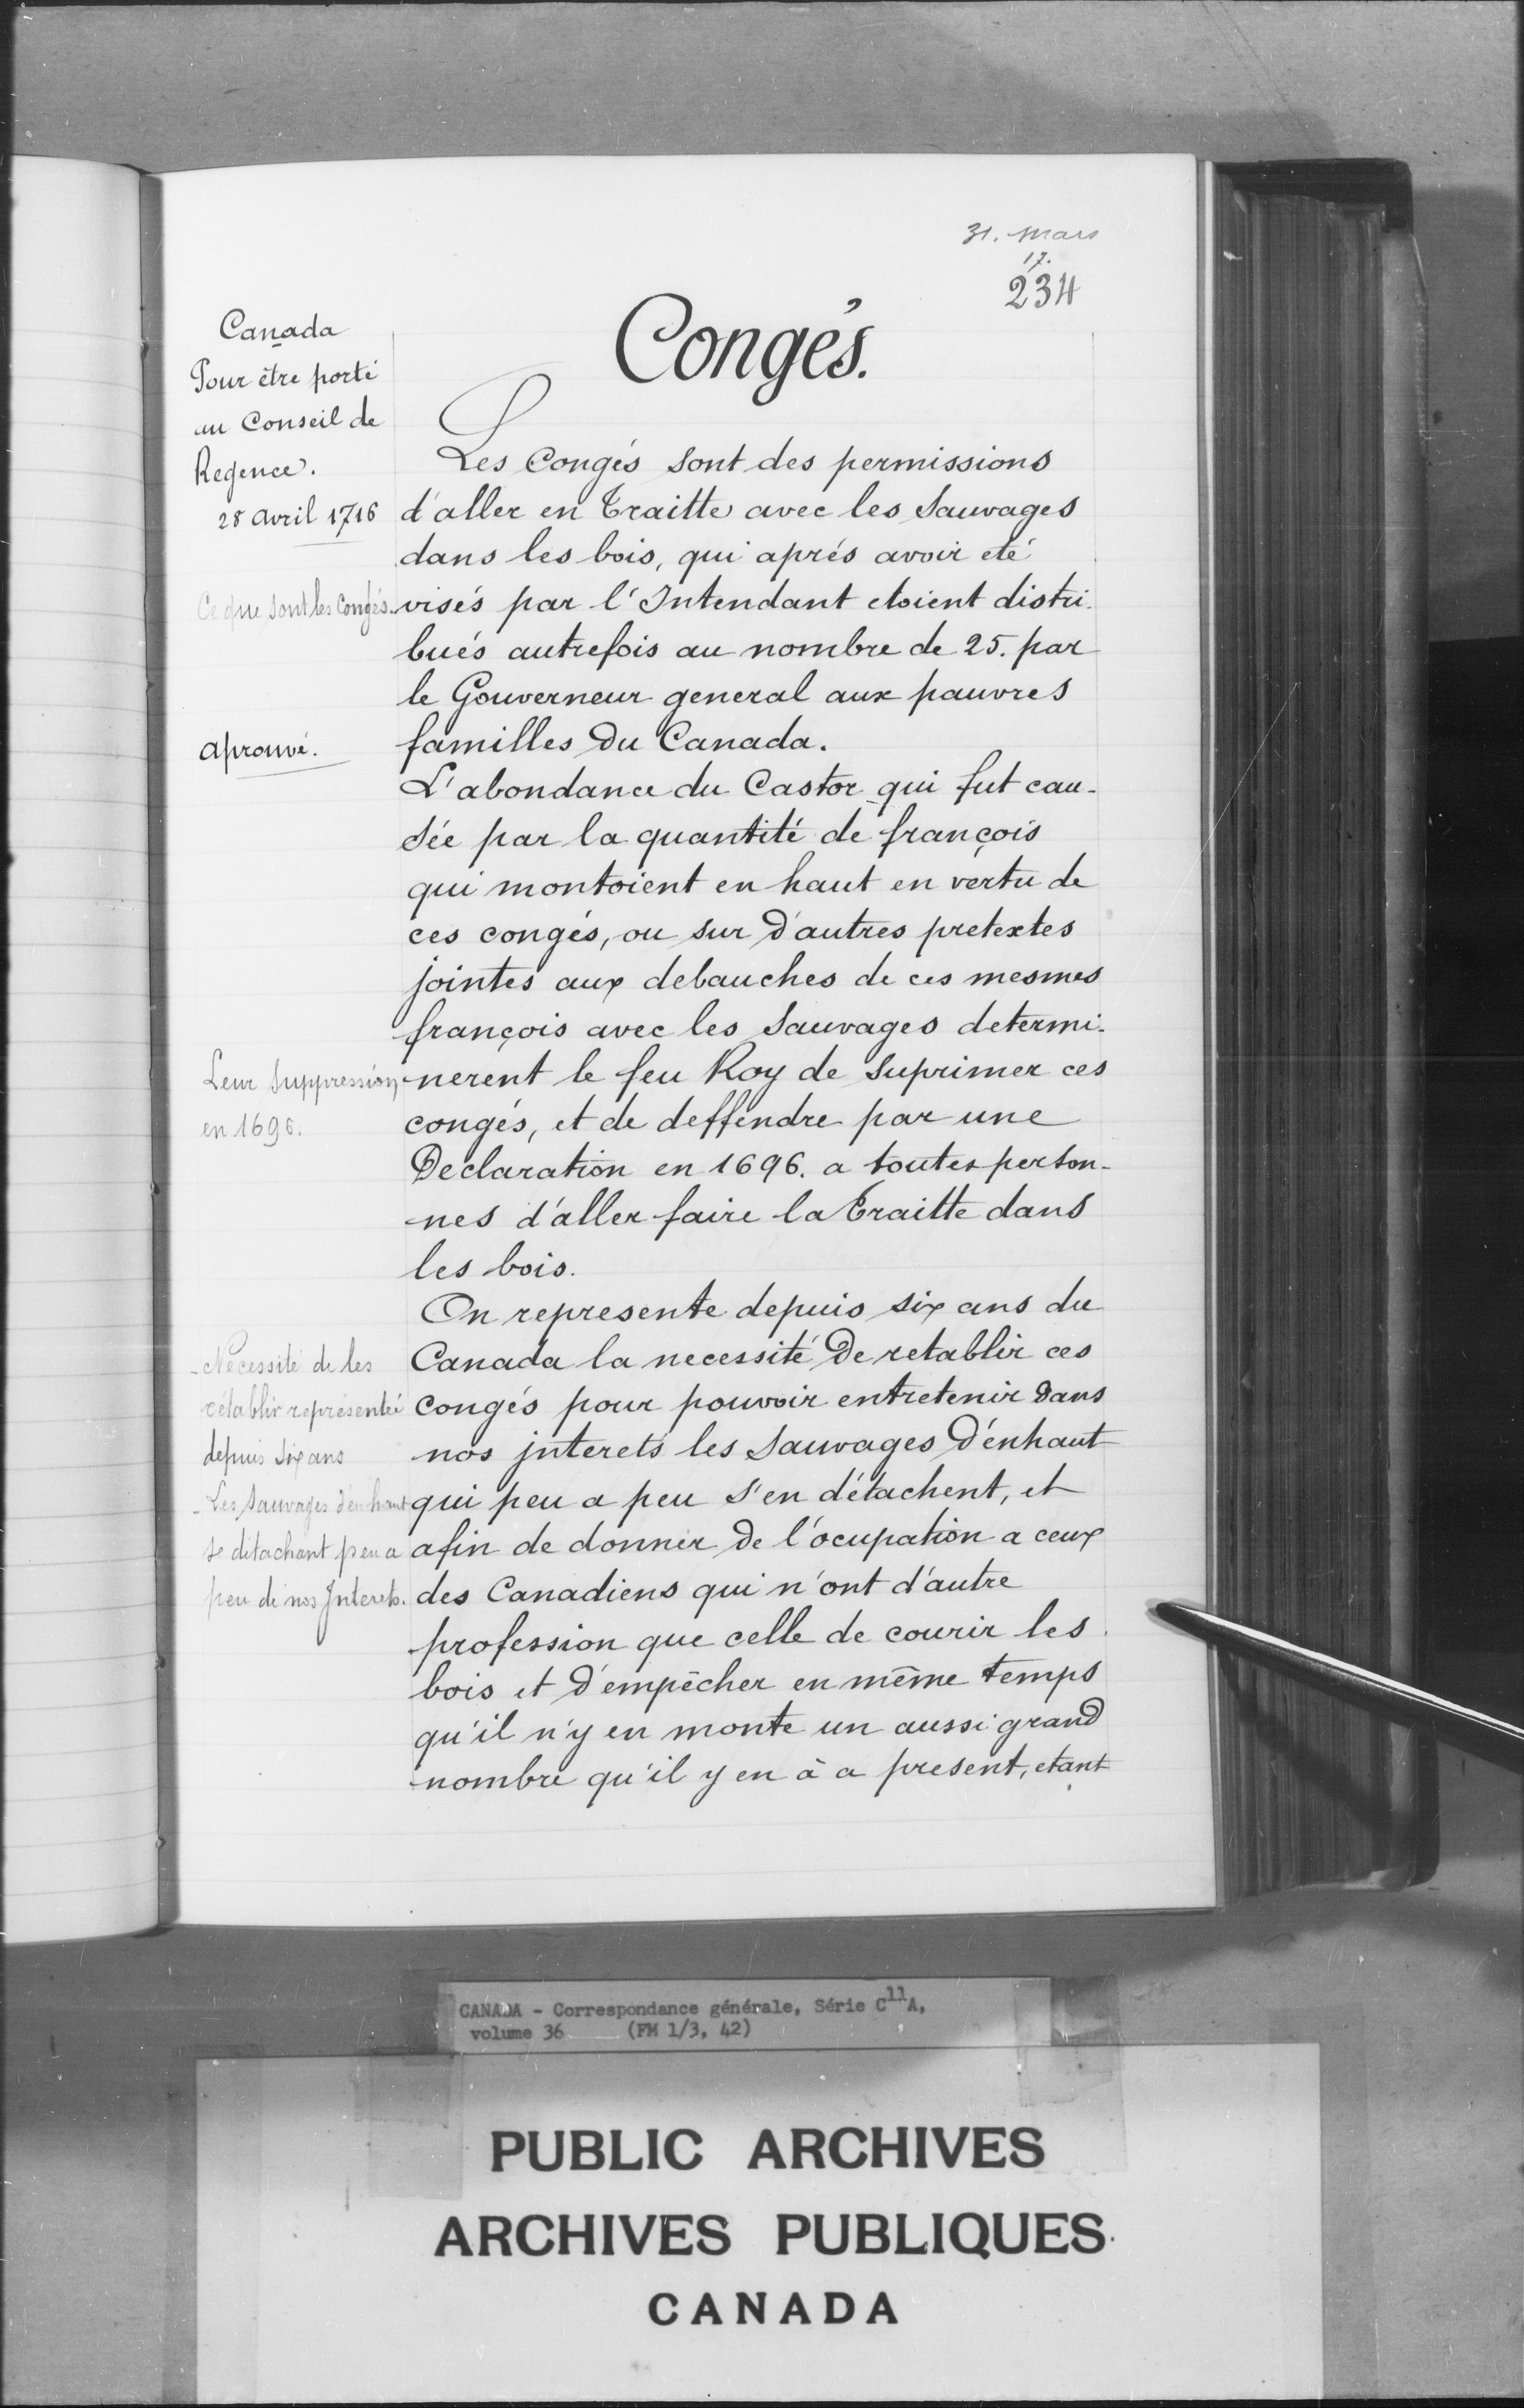 31. Mars
17.
234
Congés.
Canada
Pour être porté
au Conseil de
Regence.
28 avril 1716
Ce que sont les Congés.
aprouvé.
Les Congés sont des permissions
d'aller en Traitte avec les Sauvages
dans les bois, qui aprés avoir eté
visés par l'Intendant etoient distri-
bués autrefois au nombre de 25. par
le Gouverneur general aux pauvres
familles du Canada.
L'abondance du Castor qui fut cau-
sée par la quantité de françois
qui montoient en haut en vertu de
ces congés, ou sur d'autres pretextes
jointes aux debauches de ces mesmes
françois avec les Sauvages determi-
Leur Suppression
en 1696.
nerent le feu Roy de Suprimer ces
congés, et de deffendre par une
Declaration en 1696. a toutes person-
nes d'aller faire la Traitte dans
les bois.
On represente depuis six ans du
- Necessité de les
rétablir représentée
depuis six ans
- Les Sauvages d'en haut
se détachant peu a
peu de nos Interets.
Canada la necessité de retablir ces
Congés pour pouvoir entretenir dans
nos jnterets les Sauvages d'enhaut
qui peu a peu s'en détachent, et
afin de donner de l'ocupation a ceux
des Canadiens qui n'ont d'autre
profession que celle de courir les
bois et d'empêcher en même temps
qu'il n'y en monte un aussi grand
nombre qu'il y en à a present, etant
CANADA - Correspondance générale, Série C11A,
volume 36 (FM 1/3, 42)
PUBLIC ARCHIVES
ARCHIVES PUBLIQUES
CANADA